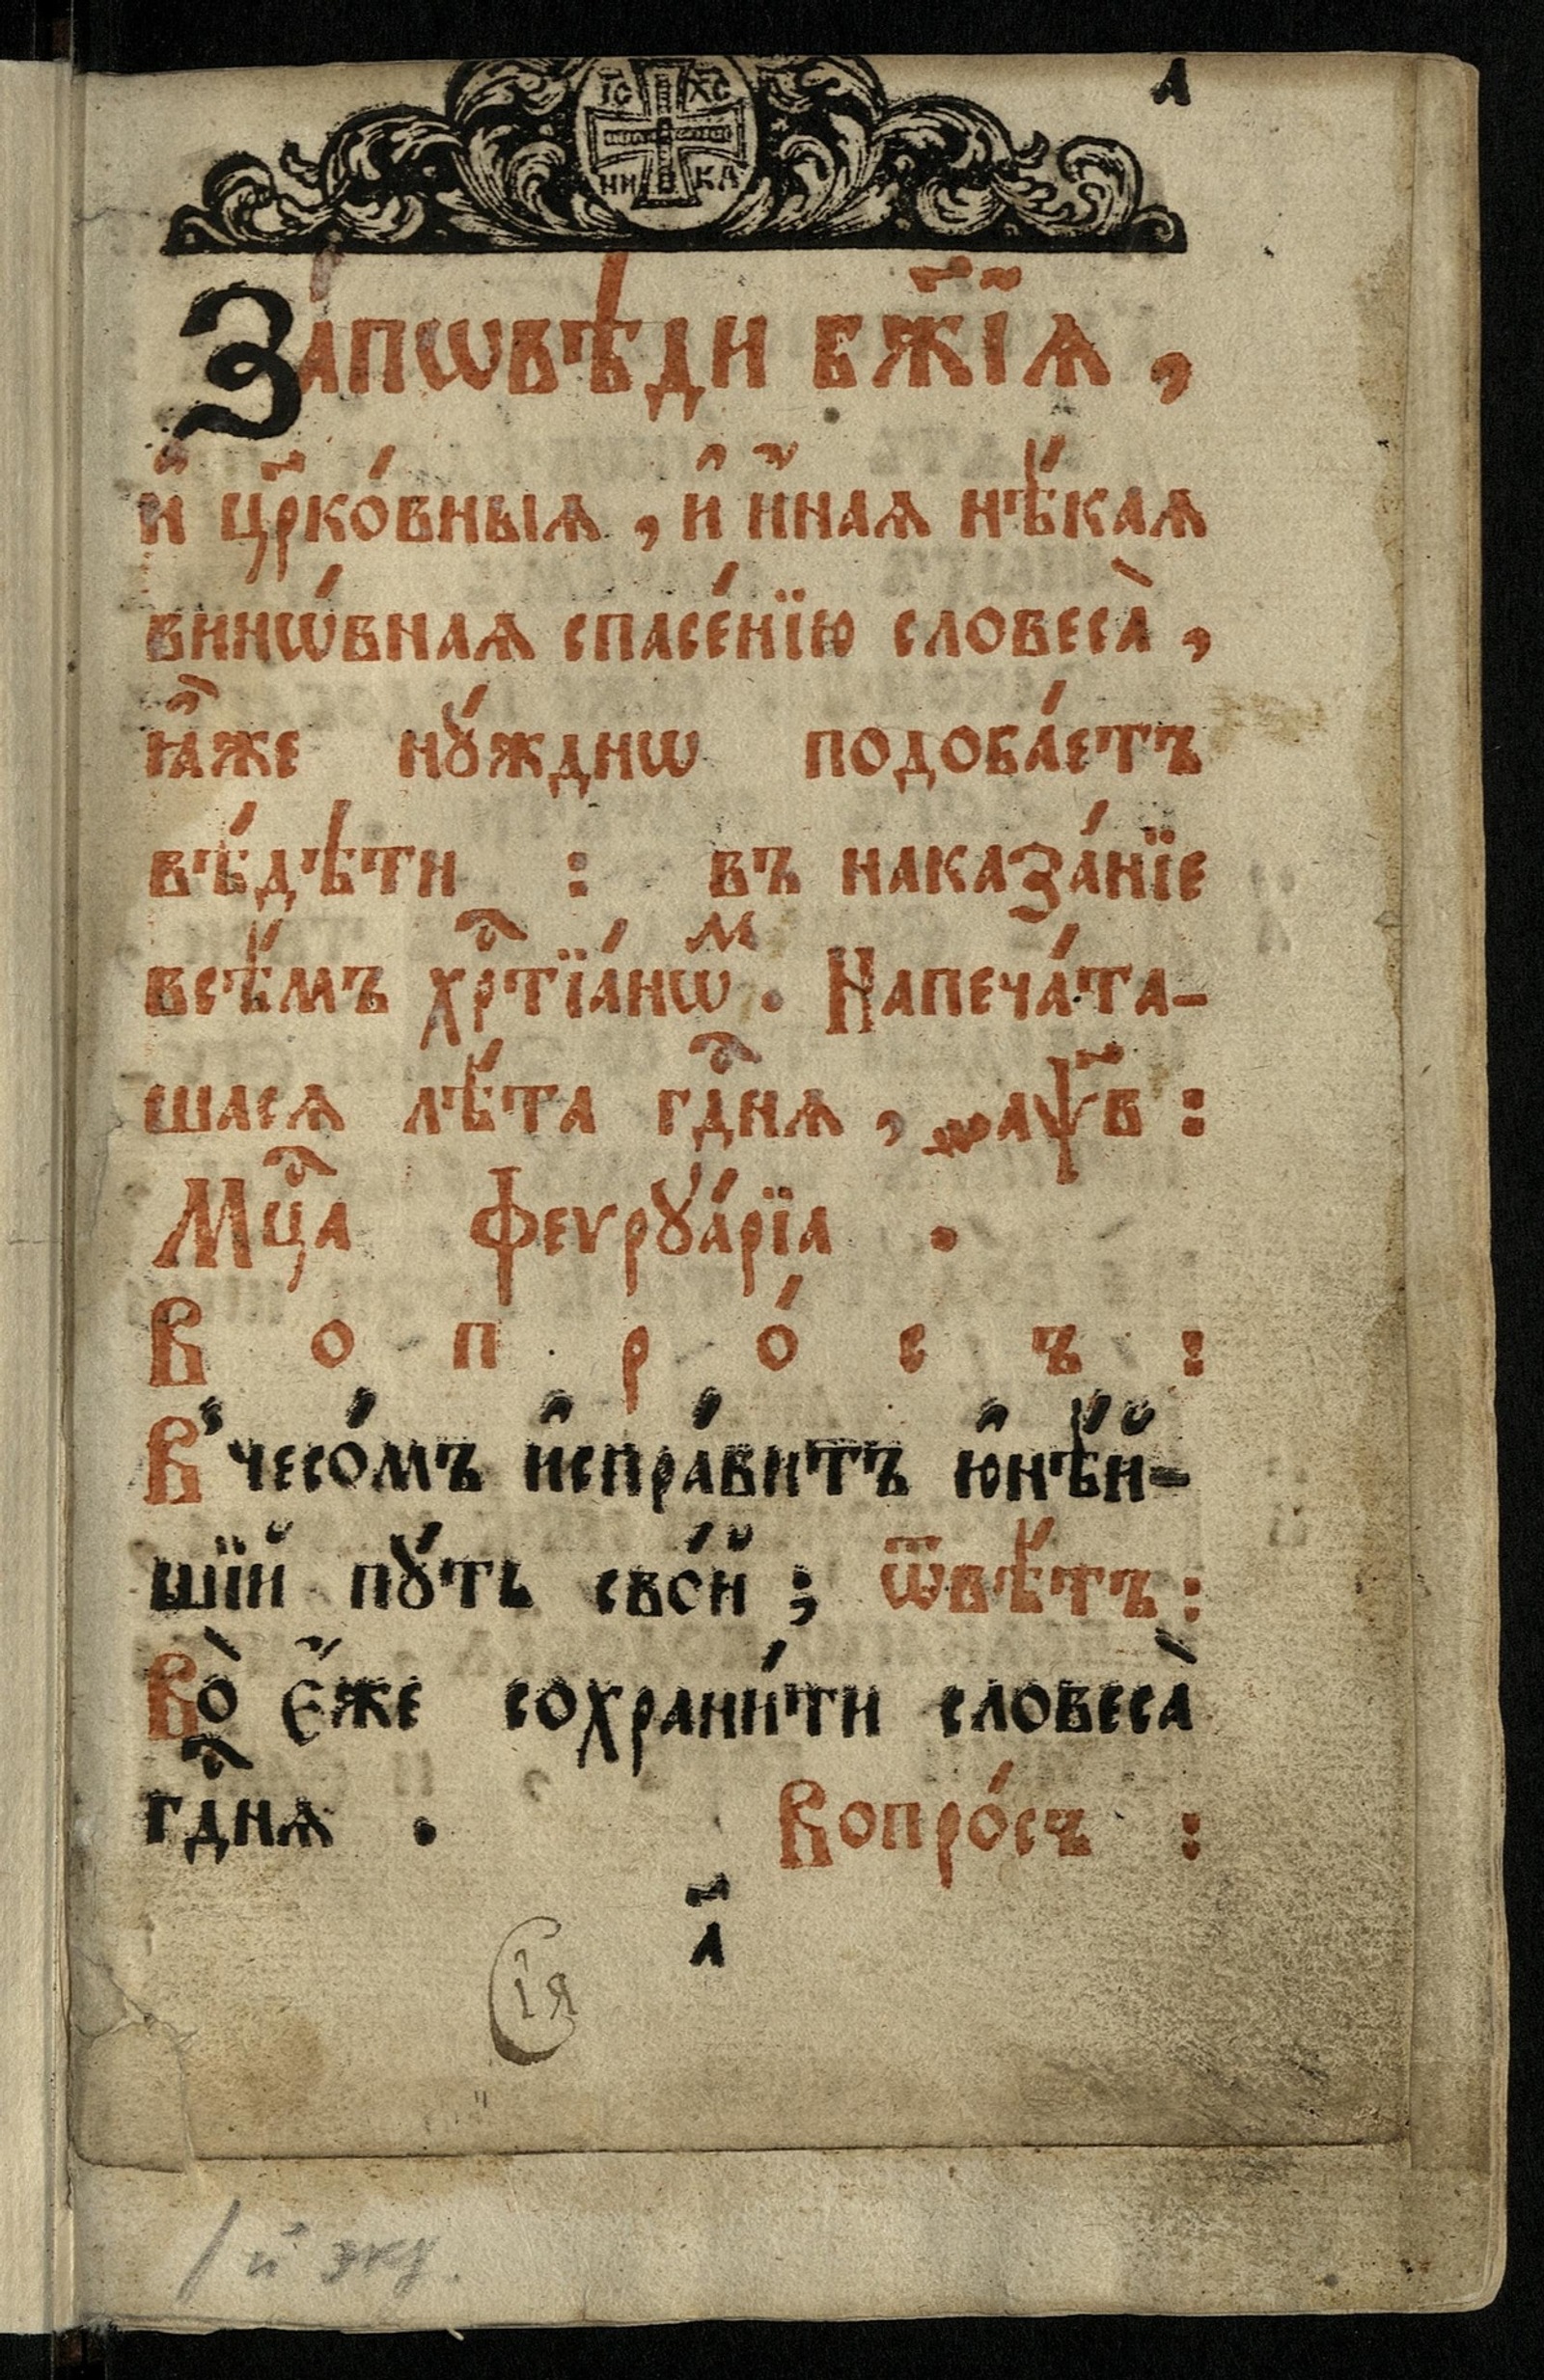 І҃С Х҃С
НИ КА
а
За́пѡвѣ́ди Бж҃їѧ҃,
и҆ цр҃ко́вныѧ, и҆ и҆́наѧ нѣ́каѧ
винѡ́внаѧ спасе́нїю словеса̀,
ꙗ҆̀же нꙋ́жднѡ подоба́етъ
вѣ́дѣ́ти : въ наказа́нїе
всѣ́мъ хрⷭ҇тїа́нѡⷨ. Напеча́та-
шасѧ лѣ́та гдⷭ҇нѧ, ҂аѱ҃в :
Мцⷭ҇а феѵрꙋа́рїа .
Вопро́съ :
В̾ чесо́мъ и҆спра́витъ ю҆нѣ́й-
шїй пꙋ́ть сво́й ; ѿвѣ́тъ :
Во̀ є҆́же сохрани́ти словеса̀
гдⷭ҇нѧ . Вопро́съ :
а҃
Сїя
1 й экз.